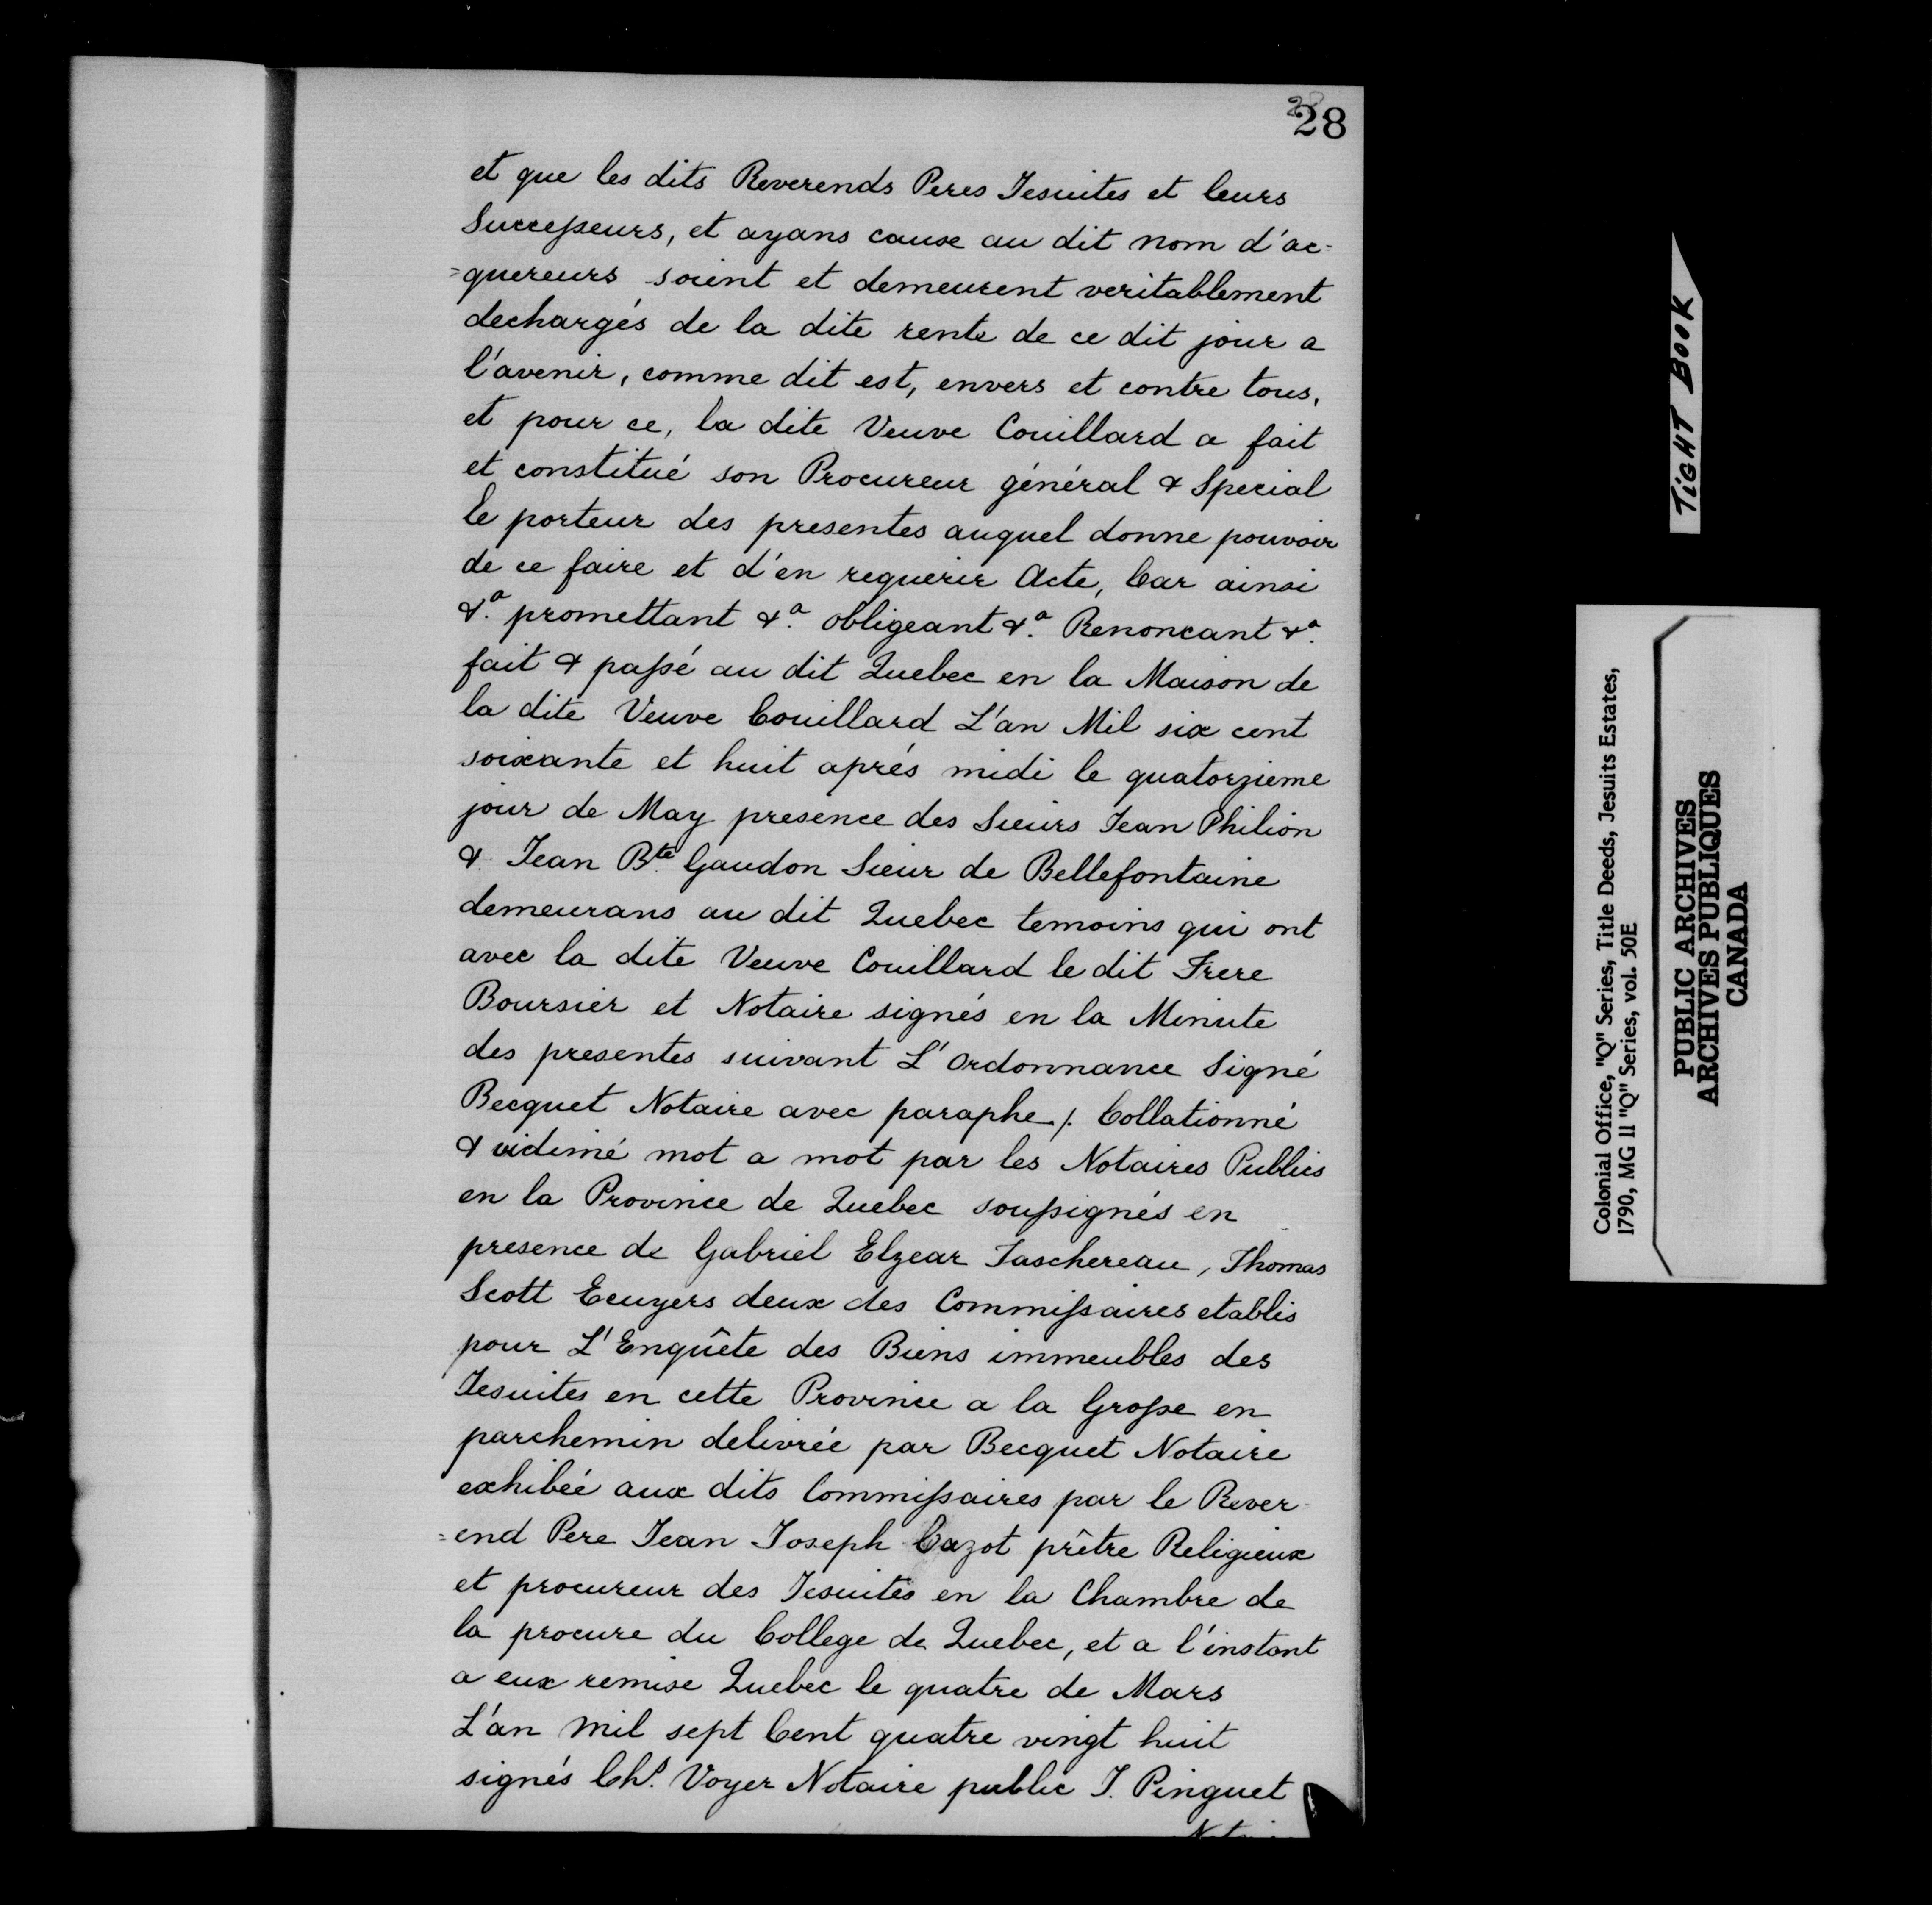 28
28
et que les dits Reverends Peres Jesuites et leurs
Successeurs, et ayans cause au dit nom d'ac=
=quereurs soient et demeurent veritablement
dechargés de la dite rente de ce dit jour a
l'avenir, comme dit est, envers et contre tous,
et pour ce, la dite Veuve Couillard a fait
et constitué son Procureur général & Special
le porteur des presentes auquel donne pouvoir
de ce faire et d'en requerir Acte, Car ainsi
&.a promettant &.a obligeant &.a Renoncant &.a
fait & passé au dit Quebec en la Maison de
la dite Veuve Couillard L'an Mil six cent
soixante et huit aprés midi le quatorzieme
jour de May presence des Sieurs Jean Philion
& Jean B.te Gaudon Sieur de Bellefontaine
demeurans au dit Quebec temoins qui ont
avec la dite Veuve Couillard le dit Frere
Boursier et Notaire signés en la Minute
des presentes suivant L'Ordonnance Signé
Becquet Notaire avec paraphe /. Collationné
& vidimé mot a mot par les Notaires Publics
en la Province de Quebec soussignés en
presence de Gabriel Elzear Taschereau, Thomas
Scott Ecuyers deux des Commissaires etablis
pour L'Enquête des Biens immeubles des
Jesuites en cette Province a la Grosse en
parchemin delivrée par Becquet Notaire
exhibée aux dits Commissaires par le Rever=
=end Pere Jean Joseph Cazot prêtre Religieux
et procureur des Jesuites en la Chambre de
la procure du College de Quebec, et a l'instant
a eux remise Quebec le quatre de Mars
L'an mil sept Cent quatre vingt huit
signés Ch.s Voyer Notaire public J. Pinguet
TiGHT BOOK
Colonial Office, "Q" Series, Title Deeds, Jesuits Estates,
1790, MG 11 "Q" Series, vol. 50E
PUBLIC ARCHIVES
ARCHIVES PUBLIQUES
CANADA